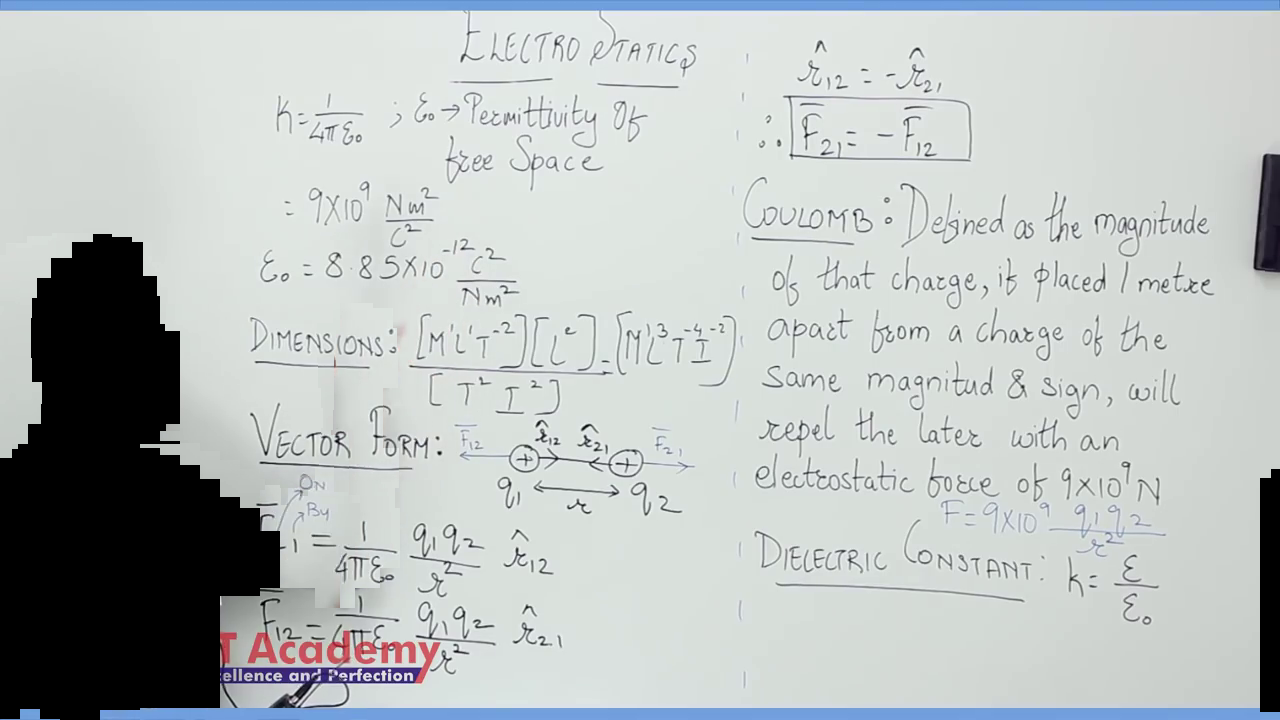 ELECTROSTATICS
K = 1/4πε₀ ; ε₀ → Permittivity Of
free Space
= 9×10⁹ Nm²/C²
ε₀ = 8.85×10⁻¹² C²/Nm²
DIMENSIONS: [M¹L¹T⁻²][L²]/[T² I²] = [M¹L³T⁻⁴I⁻²]
VECTOR FORM: F̅₁₂ r̂₁₂ r̂₂₁ F̅₂₁
+ +
q₁ r q₂
ON
By
₁ = 1/4πε₀ q₁q₂/r² r̂₁₂
F̅₁₂ = 1/4πε₀ q₁q₂/r² r̂₂₁
T Academy
ellence and Perfection
r̂₁₂ = -r̂₂₁
∴ F̅₂₁ = -F̅₁₂
COULOMB: Defined as the magnitude
of that charge, if placed 1 metre
apart from a charge of the
same magnitud & sign, will
repel the later with an
electrostatic force of 9×10⁹N
F = 9×10⁹ q₁q₂/r²
DIELECTRIC CONSTANT: k = ε/ε₀